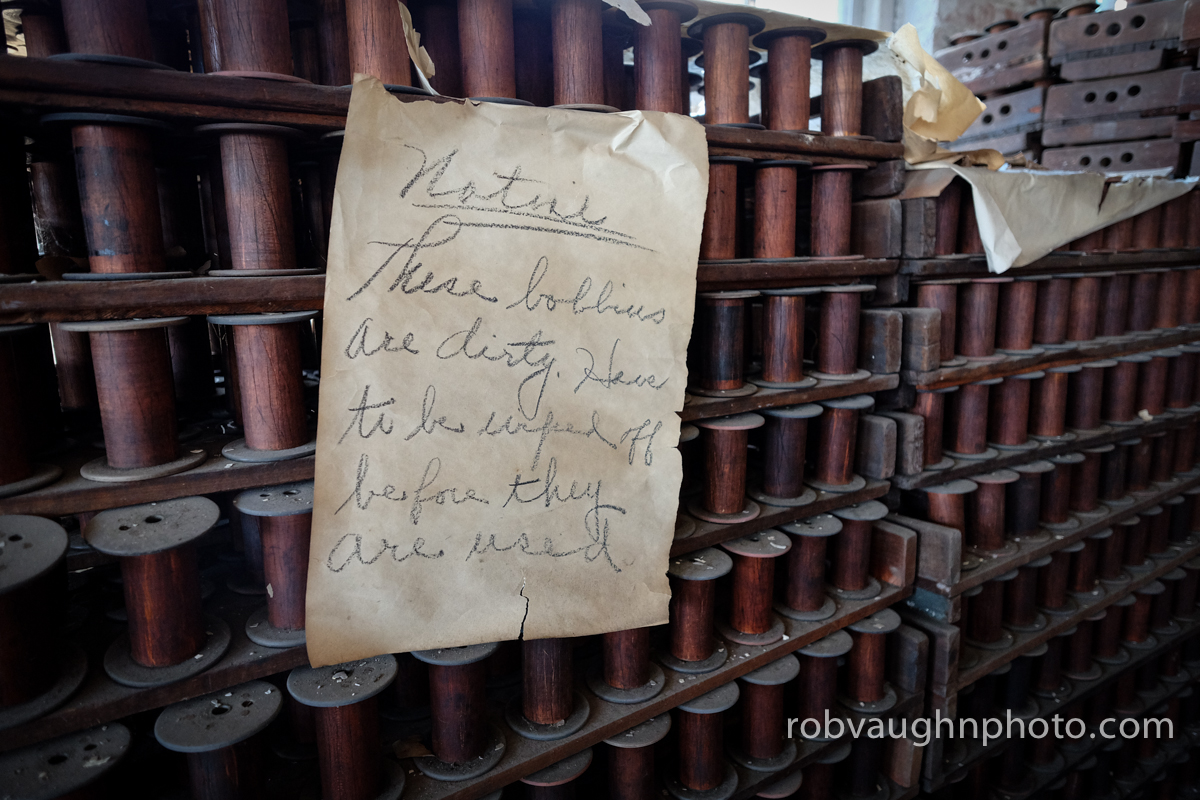 Notice
These bobbins
are dirty. Have
to be wiped off
before they
are used
robvaughnphoto.com